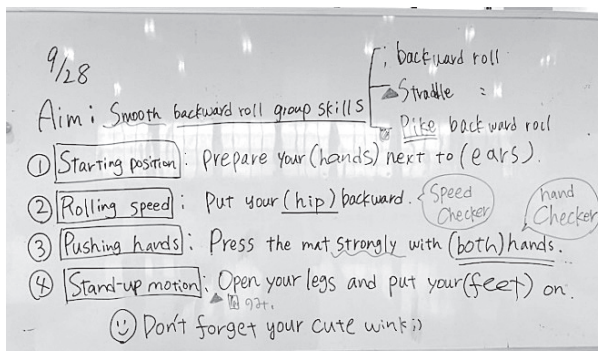 9/28
; backward roll
Straddle 〃
Aim: Smooth backward roll group skills
Pike backward roll
① Starting position: Prepare your (hands) next to (ears).
② Rolling speed: Put your (hip) backward.
Speed Checker
hand Checker
③ Pushing hands: Press the mat strongly with (both) hands.
④ Stand-up motion: Open your legs and put your (feet) on.
Don't forget your cute wink ;)